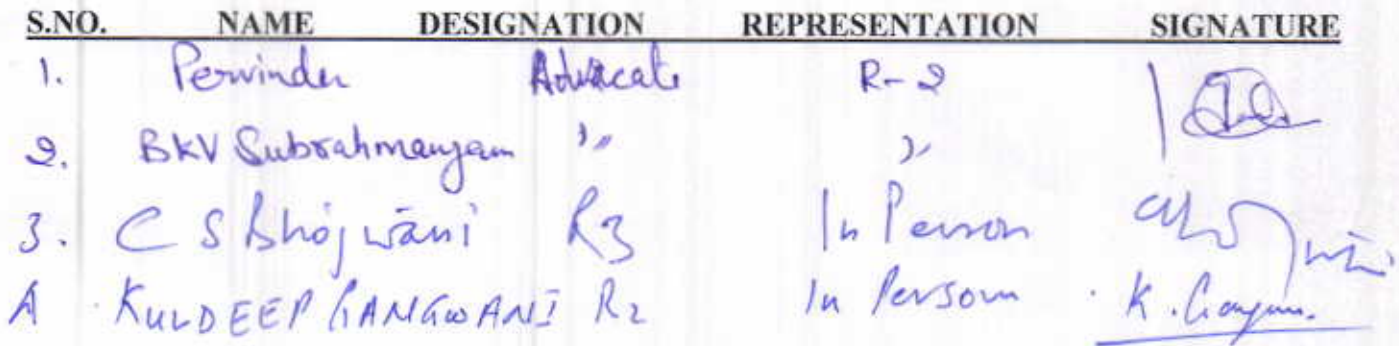 S.NO. NAME DESIGNATION REPRESENTATION SIGNATURE
1. Pervinder Advocate R-2
2. BKV Subrahmanyam " "
3. C S Bhojwani R3 In Person
4 KULDEEP GANGWANI R2 In Person K.